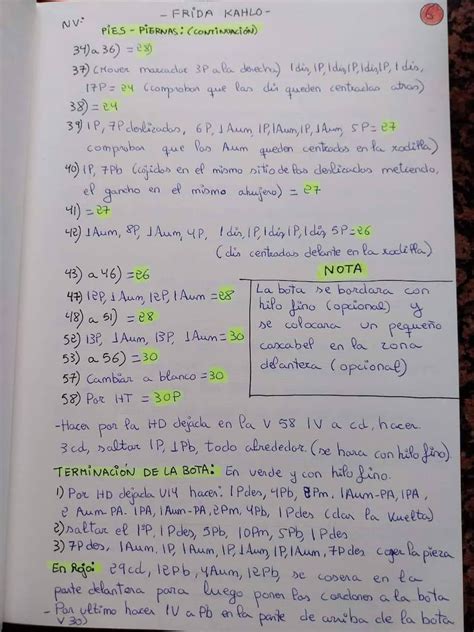 - FRIDA KAHLO -
6
NV:
PIES - PIERNAS: (CONTINUACIÓN)
34) a 36) = 28
37) (Mover marcador 3P a la derecha) 1dis, 1P, 1dis, 1P, 1dis, 1P, 1dis,
17P = 24 (comprobar que las dis queden centradas atras)
38) = 24
39) 1P, 7P deslizados, 6P, 1Aum, 1P, 1Aum, 1P, 1Aum, 5P = 27
comprobar que los Aum queden centrados en la rodilla)
40) 1P, 7Pb (cojidos en el mismo sitio de los deslizados metiendo
el gancho en el mismo ahujero) = 27
41) = 27
42) 1Aum, 8P, 1Aum, 4P, 1dis, 1P, 1dis, 1P, 1dis, 5P = 26
(dis centradas delante en la rodilla)
43) a 46) = 26
47) 12P, 1Aum, 12P, 1Aum = 28
48) a 51) = 28
52) 13P, 1Aum, 13P, 1Aum = 30
53) a 56) = 30
57) Cambiar a blanco = 30
58) Por HT = 30P
NOTA
La bota se bordara con
hilo fino (opcional) y
se colocara un pequeño
cascabel en la zona
delantera (opcional)
- Hacer por la HD dejada en la V 58 1V a cd, hacer
3cd, saltar 1P, 1Pb, todo alrededor. (se hara con hilo fino).
TERMINACIÓN DE LA BOTA: En verde y con hilo fino.
1) Por HD dejada V14 hacer: 1Pdes, 4Pb, 2Pm, 1Aum-PA, 1PA,
2 Aum-PA, 1PA, 1Aum-PA, 2Pm, 4Pb, 1Pdes (dar la vuelta)
2) saltar el 1ºP, 1Pdes, 5Pb, 10Pm, 5Pb, 1Pdes
3) 7Pdes, 1Aum, 1P, 1Aum, 1P, 1Aum, 1P, 1Aum, 7Pdes coger la pieza
En Rojo: 29cd, 12Pb, 4Aum, 12Pb, se cosera en la
parte delantera para luego poner los cordones a la bota
- Por ultimo hacer 1V a Pb en la parte de arriba de la bota
V 30)